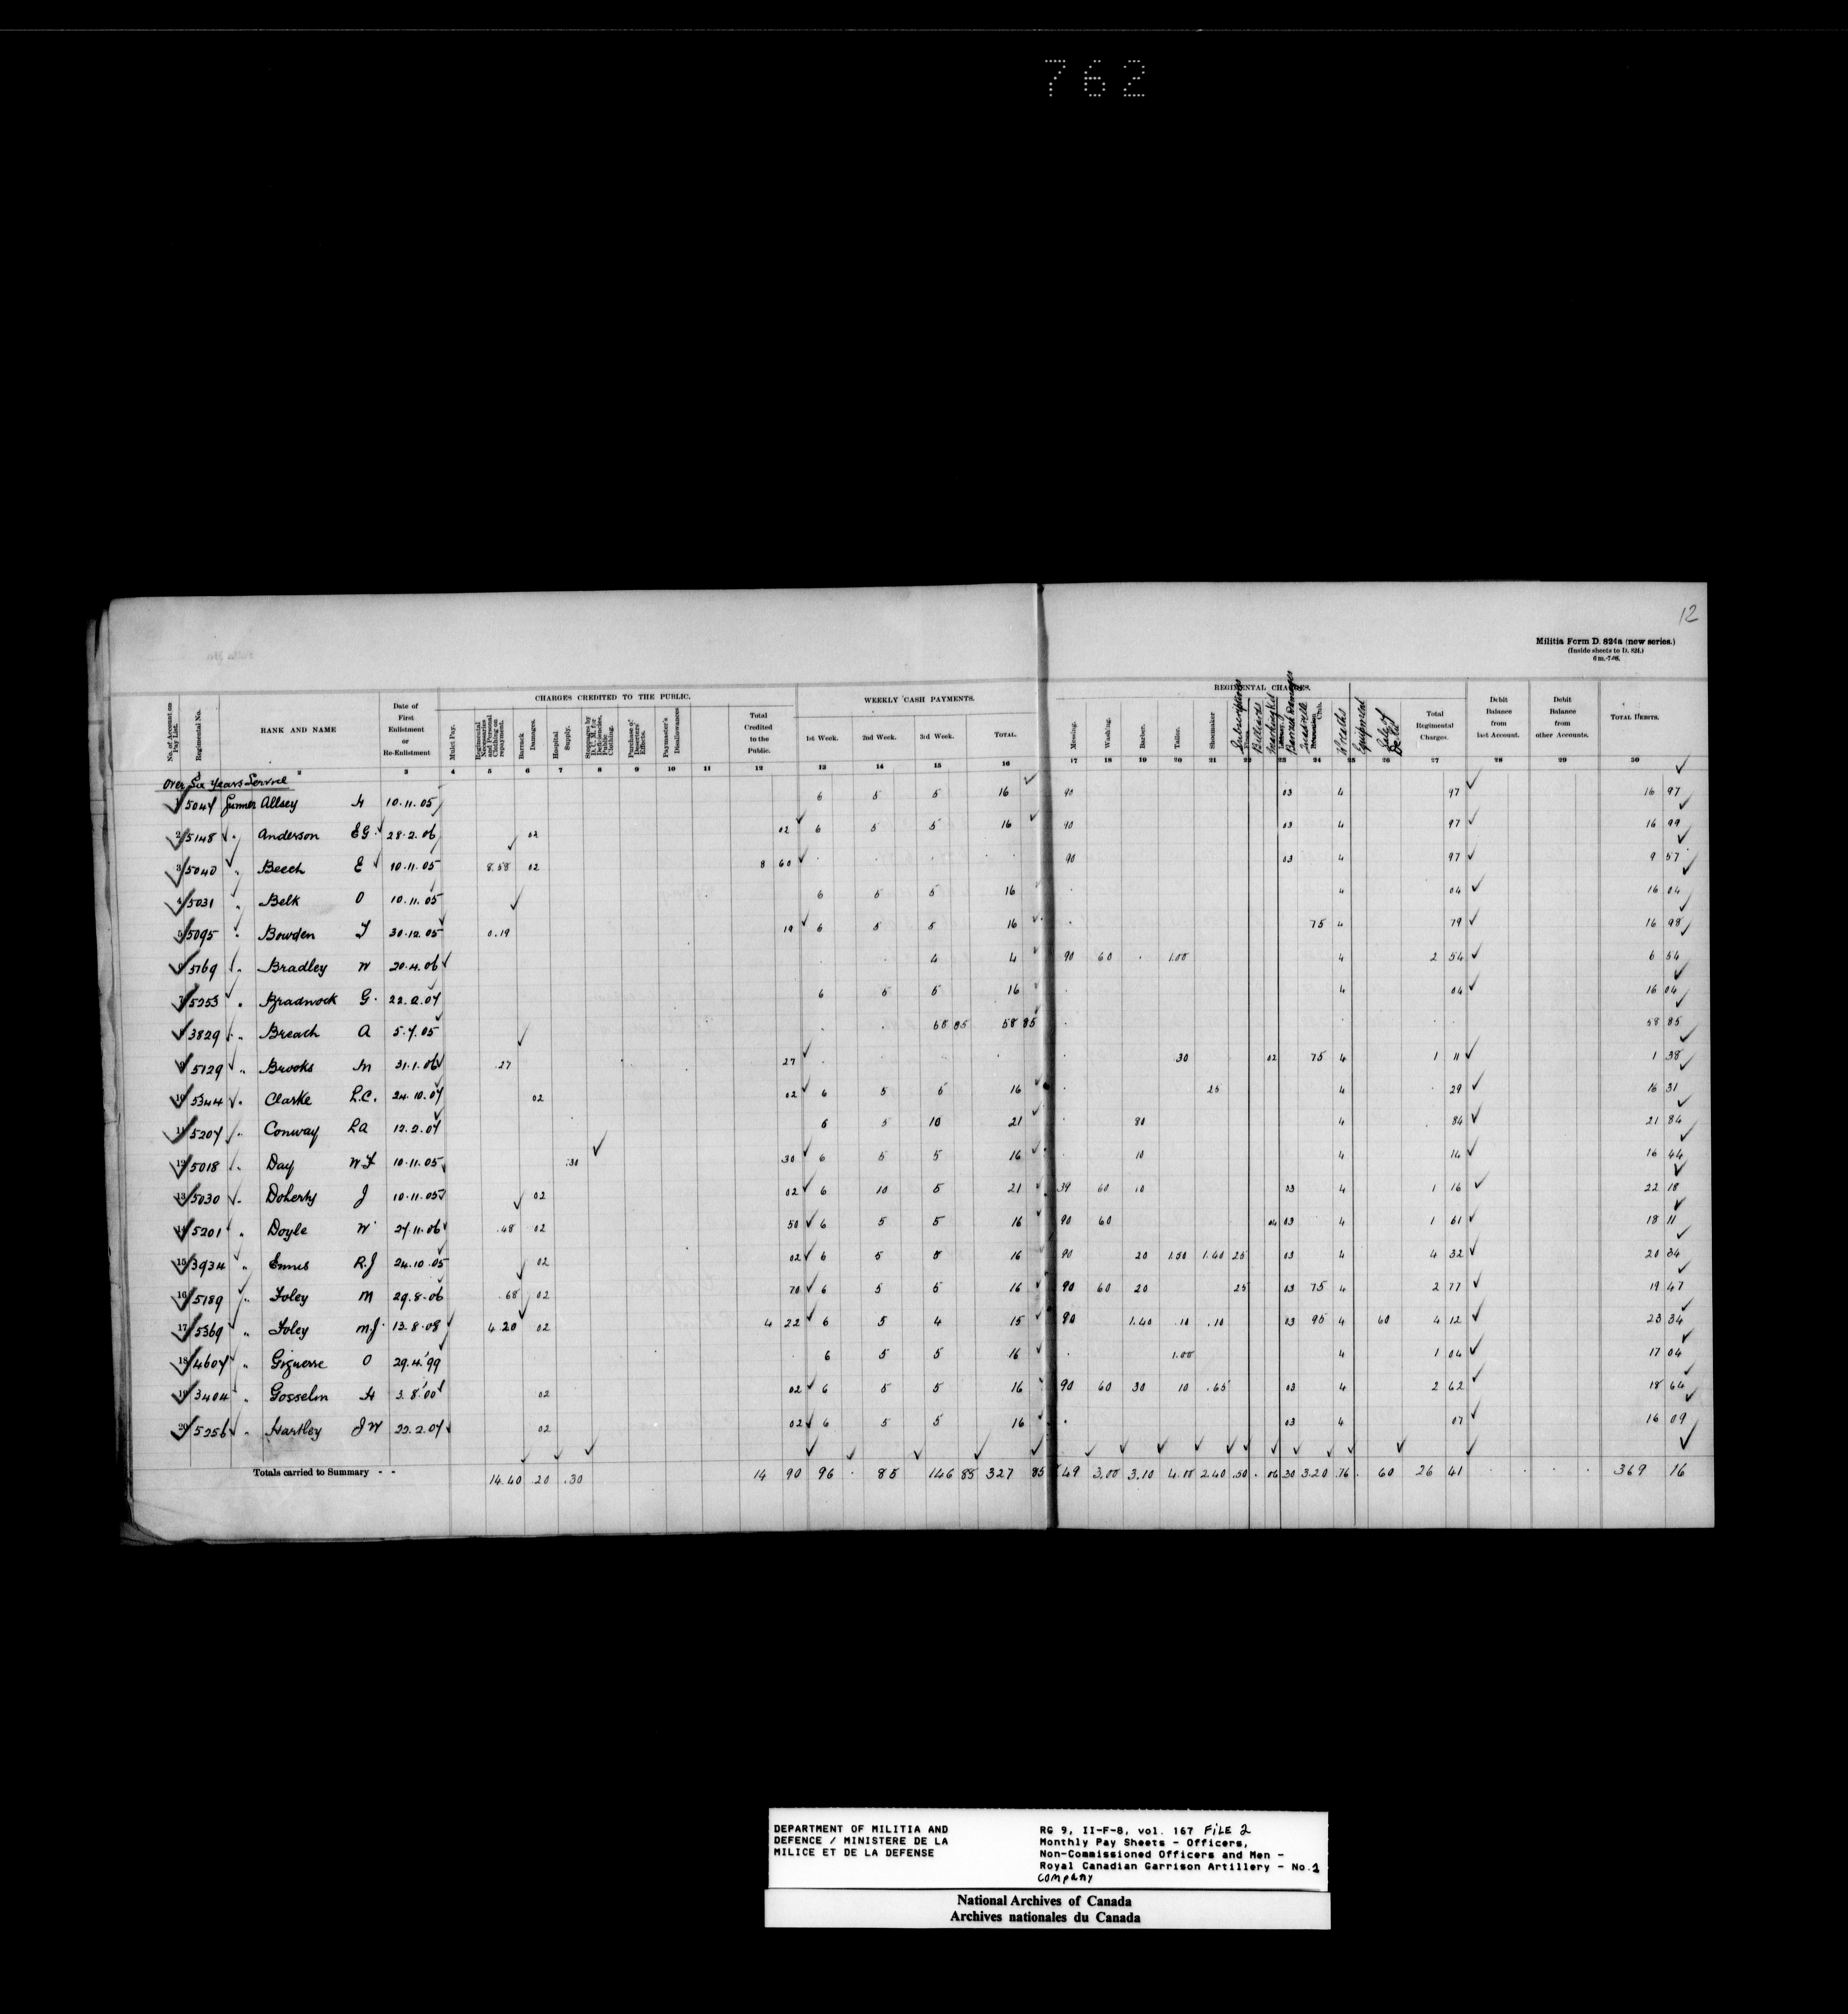 762
12
Militia Form D. 824a (new series.)
(Inside sheets to D. 821.)
6 m.-7-08.
CHARGES CREDITED TO THE PUBLIC. WEEKLY CASH PAYMENTS. REGIMENTAL CHARGES.
No. of Account on Pay List. Regimental No. RANK AND NAME Date of First Enlistment or Re-Enlistment Mulct Pay. Regimental Necessaries and Personal Clothing on repayment. Barrack Damages. Hospital Supply. Stoppages by D.C.M. for Deficiencies, Public Clothing. Purchase of Deserters' Effects. Paymaster's Disallowances Total Credited to the Public. 1st Week. 2nd Week. 3rd Week. TOTAL. Messing. Washing. Barber. Tailor. Shoemaker Subscriptions Billiards Barrack Damages Club. Wreaths Equipment Total Regimental Charges. Debit Balance from last Account. Debit Balance from other Accounts. TOTAL DEBITS.
2 3 4 5 6 7 8 9 10 11 12 13 14 15 16 17 18 19 20 21 22 23 24 25 26 27 28 29 30
Over Six Years Service
1 5047 Gunner Allsey H 10.11.05 6 5 5 16 90 03 4 97 16 97
2 5148 " Anderson EG. 28.2.06 02 02 6 5 5 16 90 03 4 97 16 99
3 5040 " Beech E 10.11.05 8.58 02 8 60 90 03 4 97 9 57
4 5031 " Belk O 10.11.05 6 5 5 16 4 04 16 04
5 5095 " Bowden T 30.12.05 0.19 19 6 5 5 16 75 4 79 16 98
6 5169 " Bradley W 20.4.06 4 4 90 60 1.00 4 2 54 6 54
7 5253 " Bradnock G. 22.2.07 6 5 5 16 4 04 16 04
8 3829 " Breach A 5.7.05 58 85 58 85 58 85
9 5129 " Brooks M 31.1.06 .27 27 30 02 75 4 1 11 1 38
10 5344 " Clarke L.C. 24.10.07 02 02 6 5 5 16 25 4 29 16 31
11 5207 " Conway LA 12.2.07 6 5 10 21 80 4 84 21 84
12 5018 " Day WF 10.11.05 .30 30 6 5 5 16 10 4 14 16 44
13 5030 " Doherty J 10.11.05 02 02 6 10 5 21 39 60 10 03 4 1 16 22 18
14 5201 " Doyle W 27.11.06 .48 02 50 6 5 5 16 90 60 04 03 4 1 61 18 11
15 3934 " Ennis R.J 24.10.05 02 02 6 5 5 16 90 20 1.50 1.40 25 03 4 4 32 20 34
16 5189 " Foley M 29.8.06 .68 02 70 6 5 5 16 90 60 20 25 03 75 4 2 77 19 47
17 5369 " Foley M.J. 13.8.08 4.20 02 4 22 6 5 4 15 90 1.40 .10 .10 03 95 4 60 4 12 23 34
18 4607 " Giguerre O 29.4.99 6 5 5 16 1.00 4 1 04 17 04
19 3404 " Gosselin H 3.8.00 02 02 6 5 5 16 90 60 30 10 .65 03 4 2 62 18 64
20 5256 " Hartley J W 22.2.07 02 02 6 5 5 16 03 4 07 16 09
Totals carried to Summary - - 14.40 .20 .30 14 90 96 . 85 146 85 327 85 49 3.00 3.10 4.00 2.40 .50 . 06 30 3.20 .76 . 60 26 41 . . . . 369 16
DEPARTMENT OF MILITIA AND
DEFENCE / MINISTERE DE LA
MILICE ET DE LA DEFENSE
RG 9, II-F-8, vol. 167 FILE 2
Monthly Pay Sheets - Officers,
Non-Commissioned Officers and Men -
Royal Canadian Garrison Artillery - No.1
Company
National Archives of Canada
Archives nationales du Canada